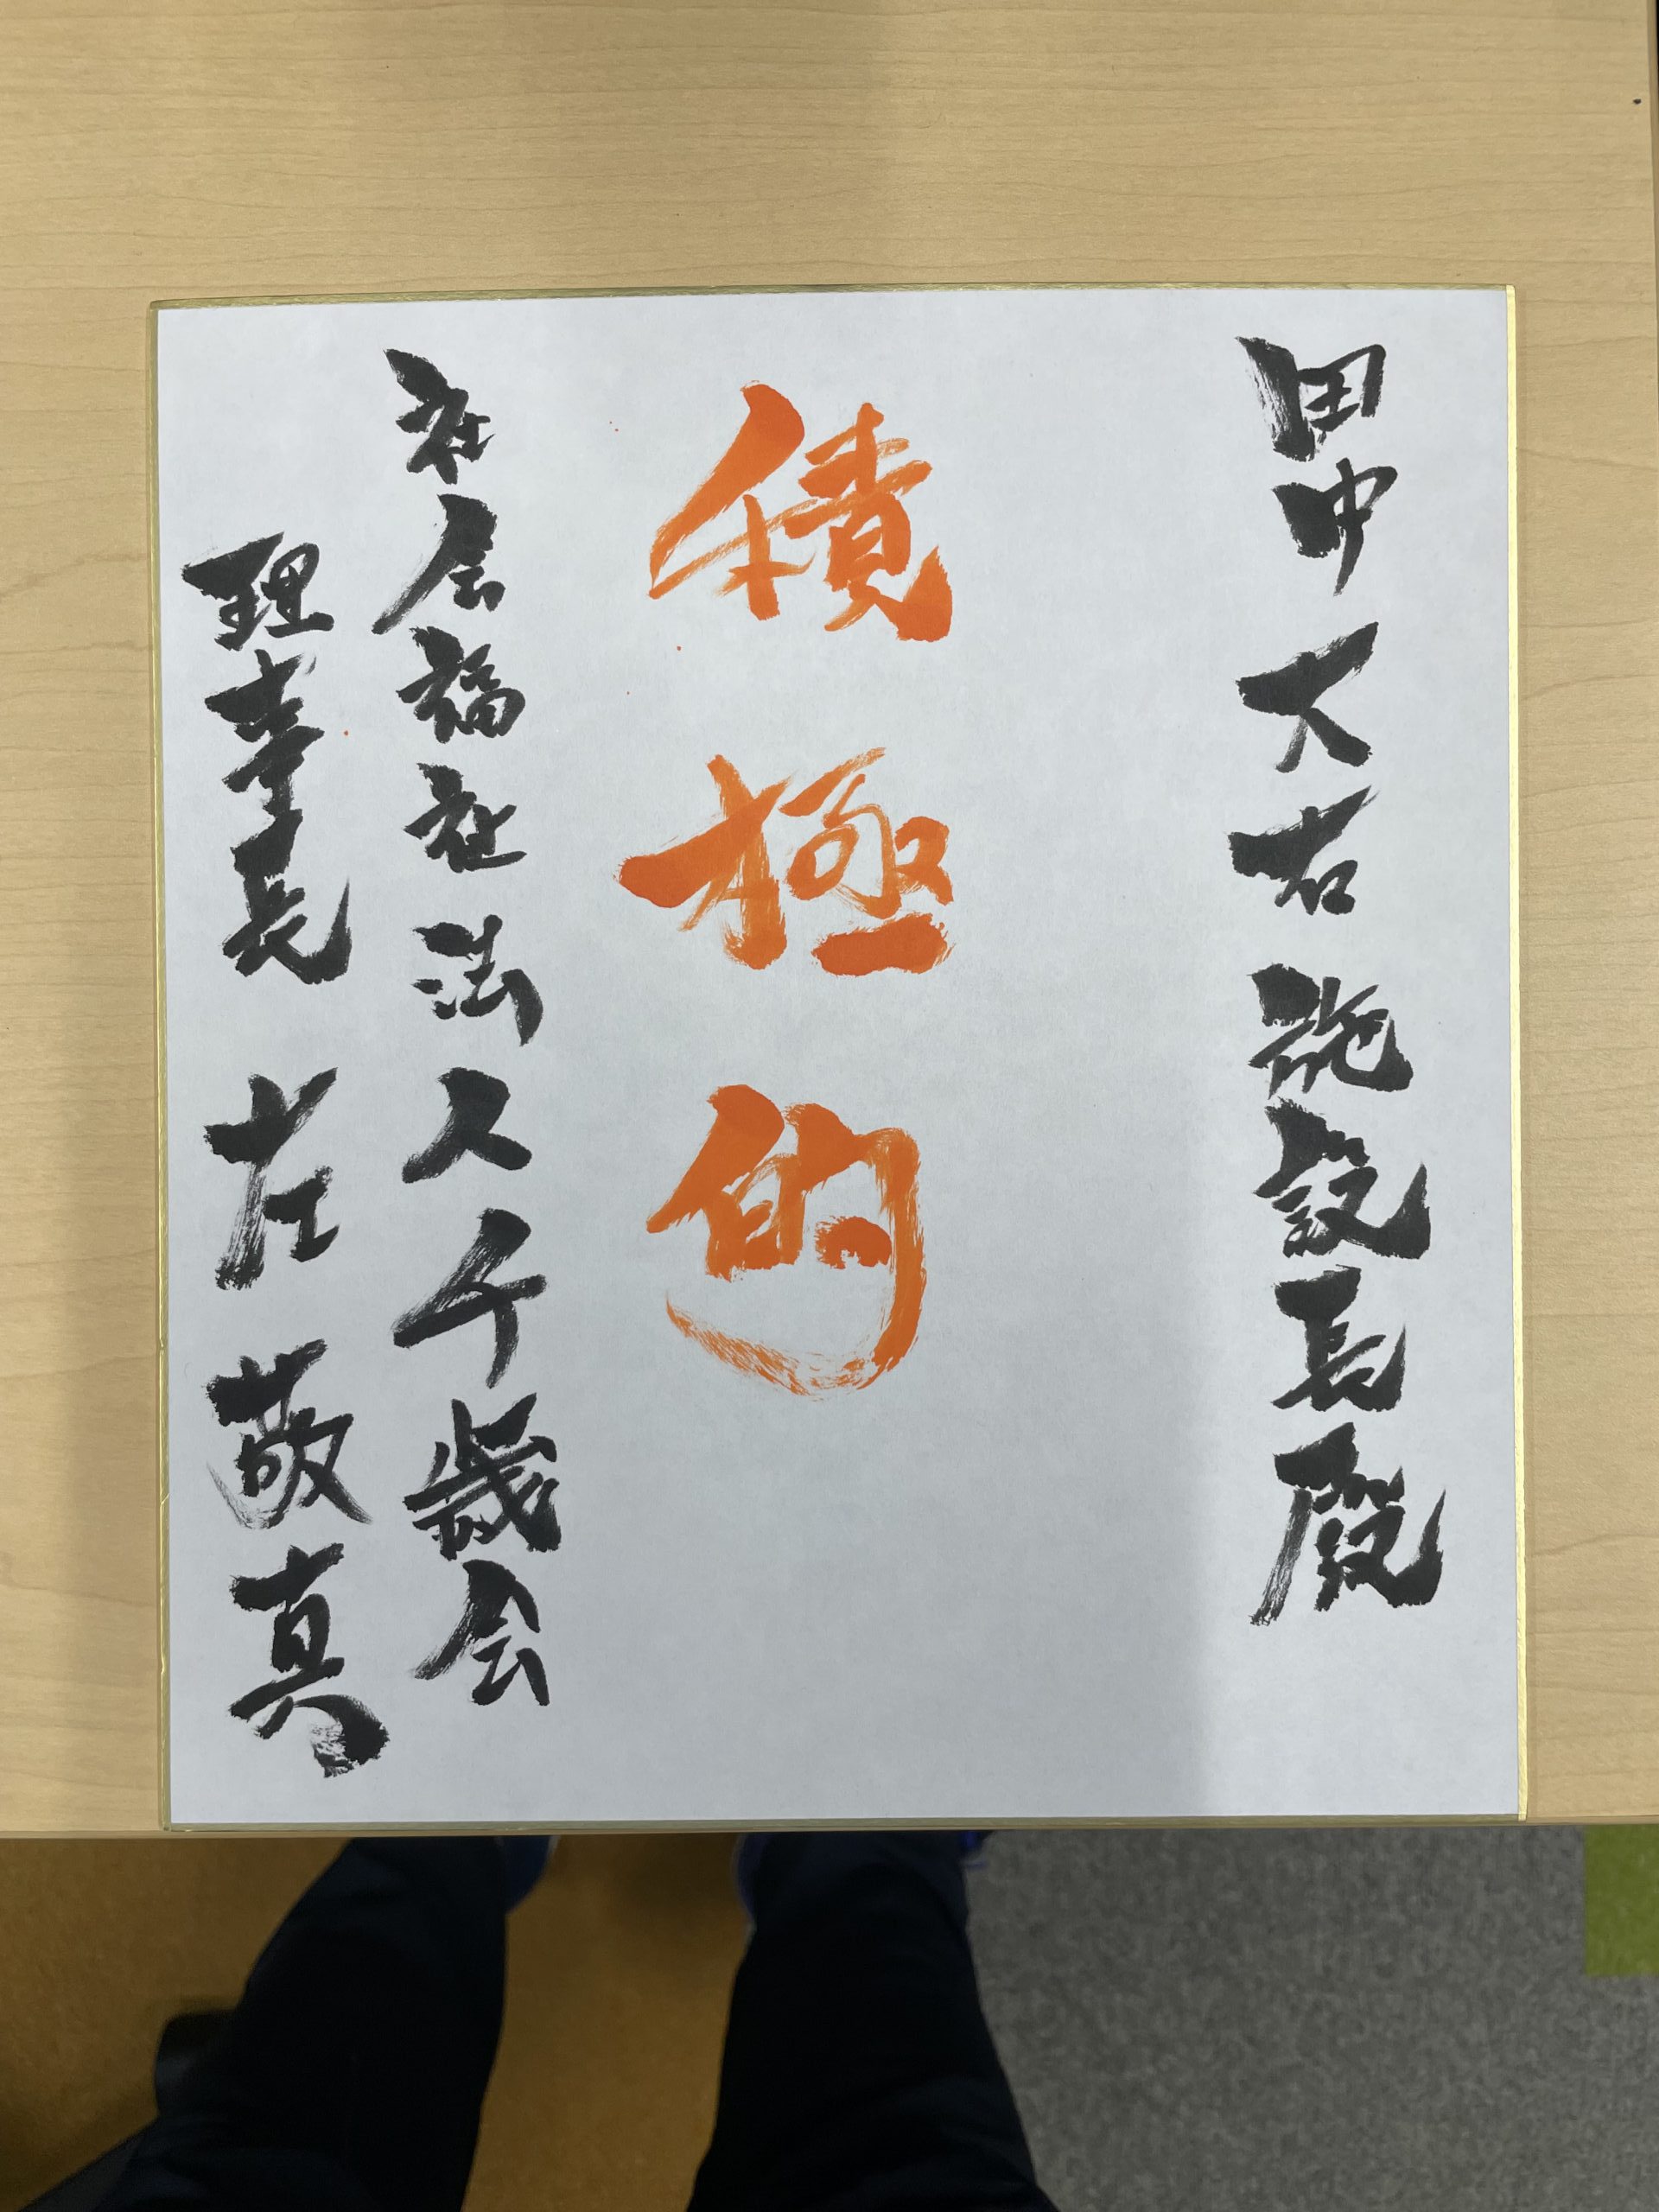 田中大右施設長殿
積極的
社会福祉法人千歳会
理事長 左 敬真